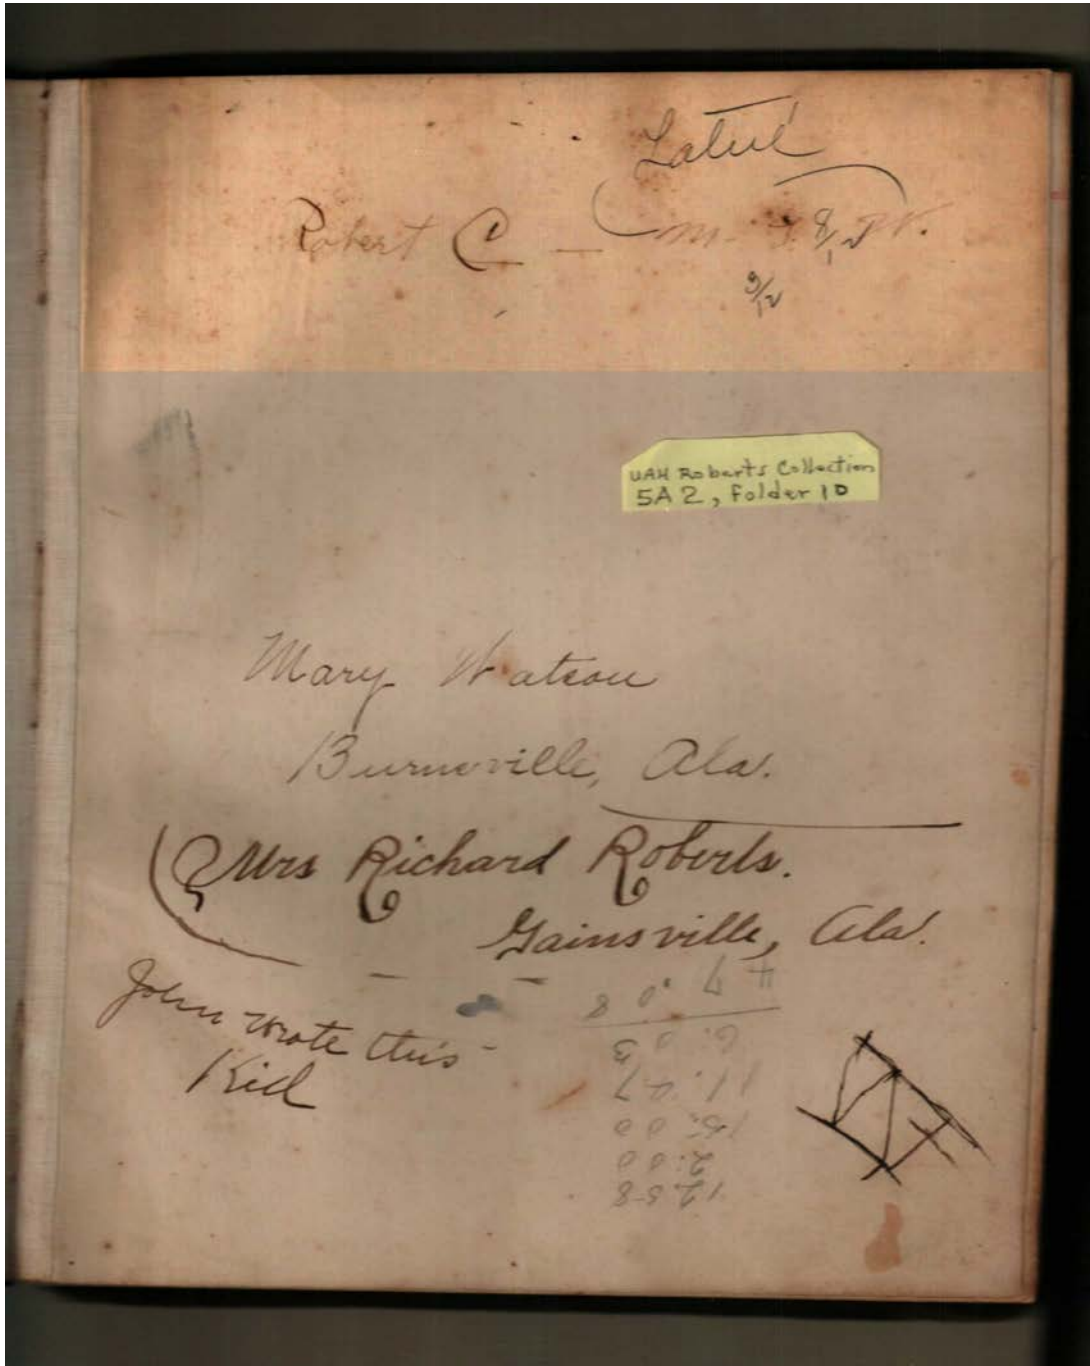 Robert C —
UAH Roberts Collection
5A2, Folder 10
Mary Watson
Burnsville, Ala.
Mrs Richard Roberts.
Gainsville, Ala.
John wrote this
Kid
12.58
2.00
15.00
11.47
6.03
47.08